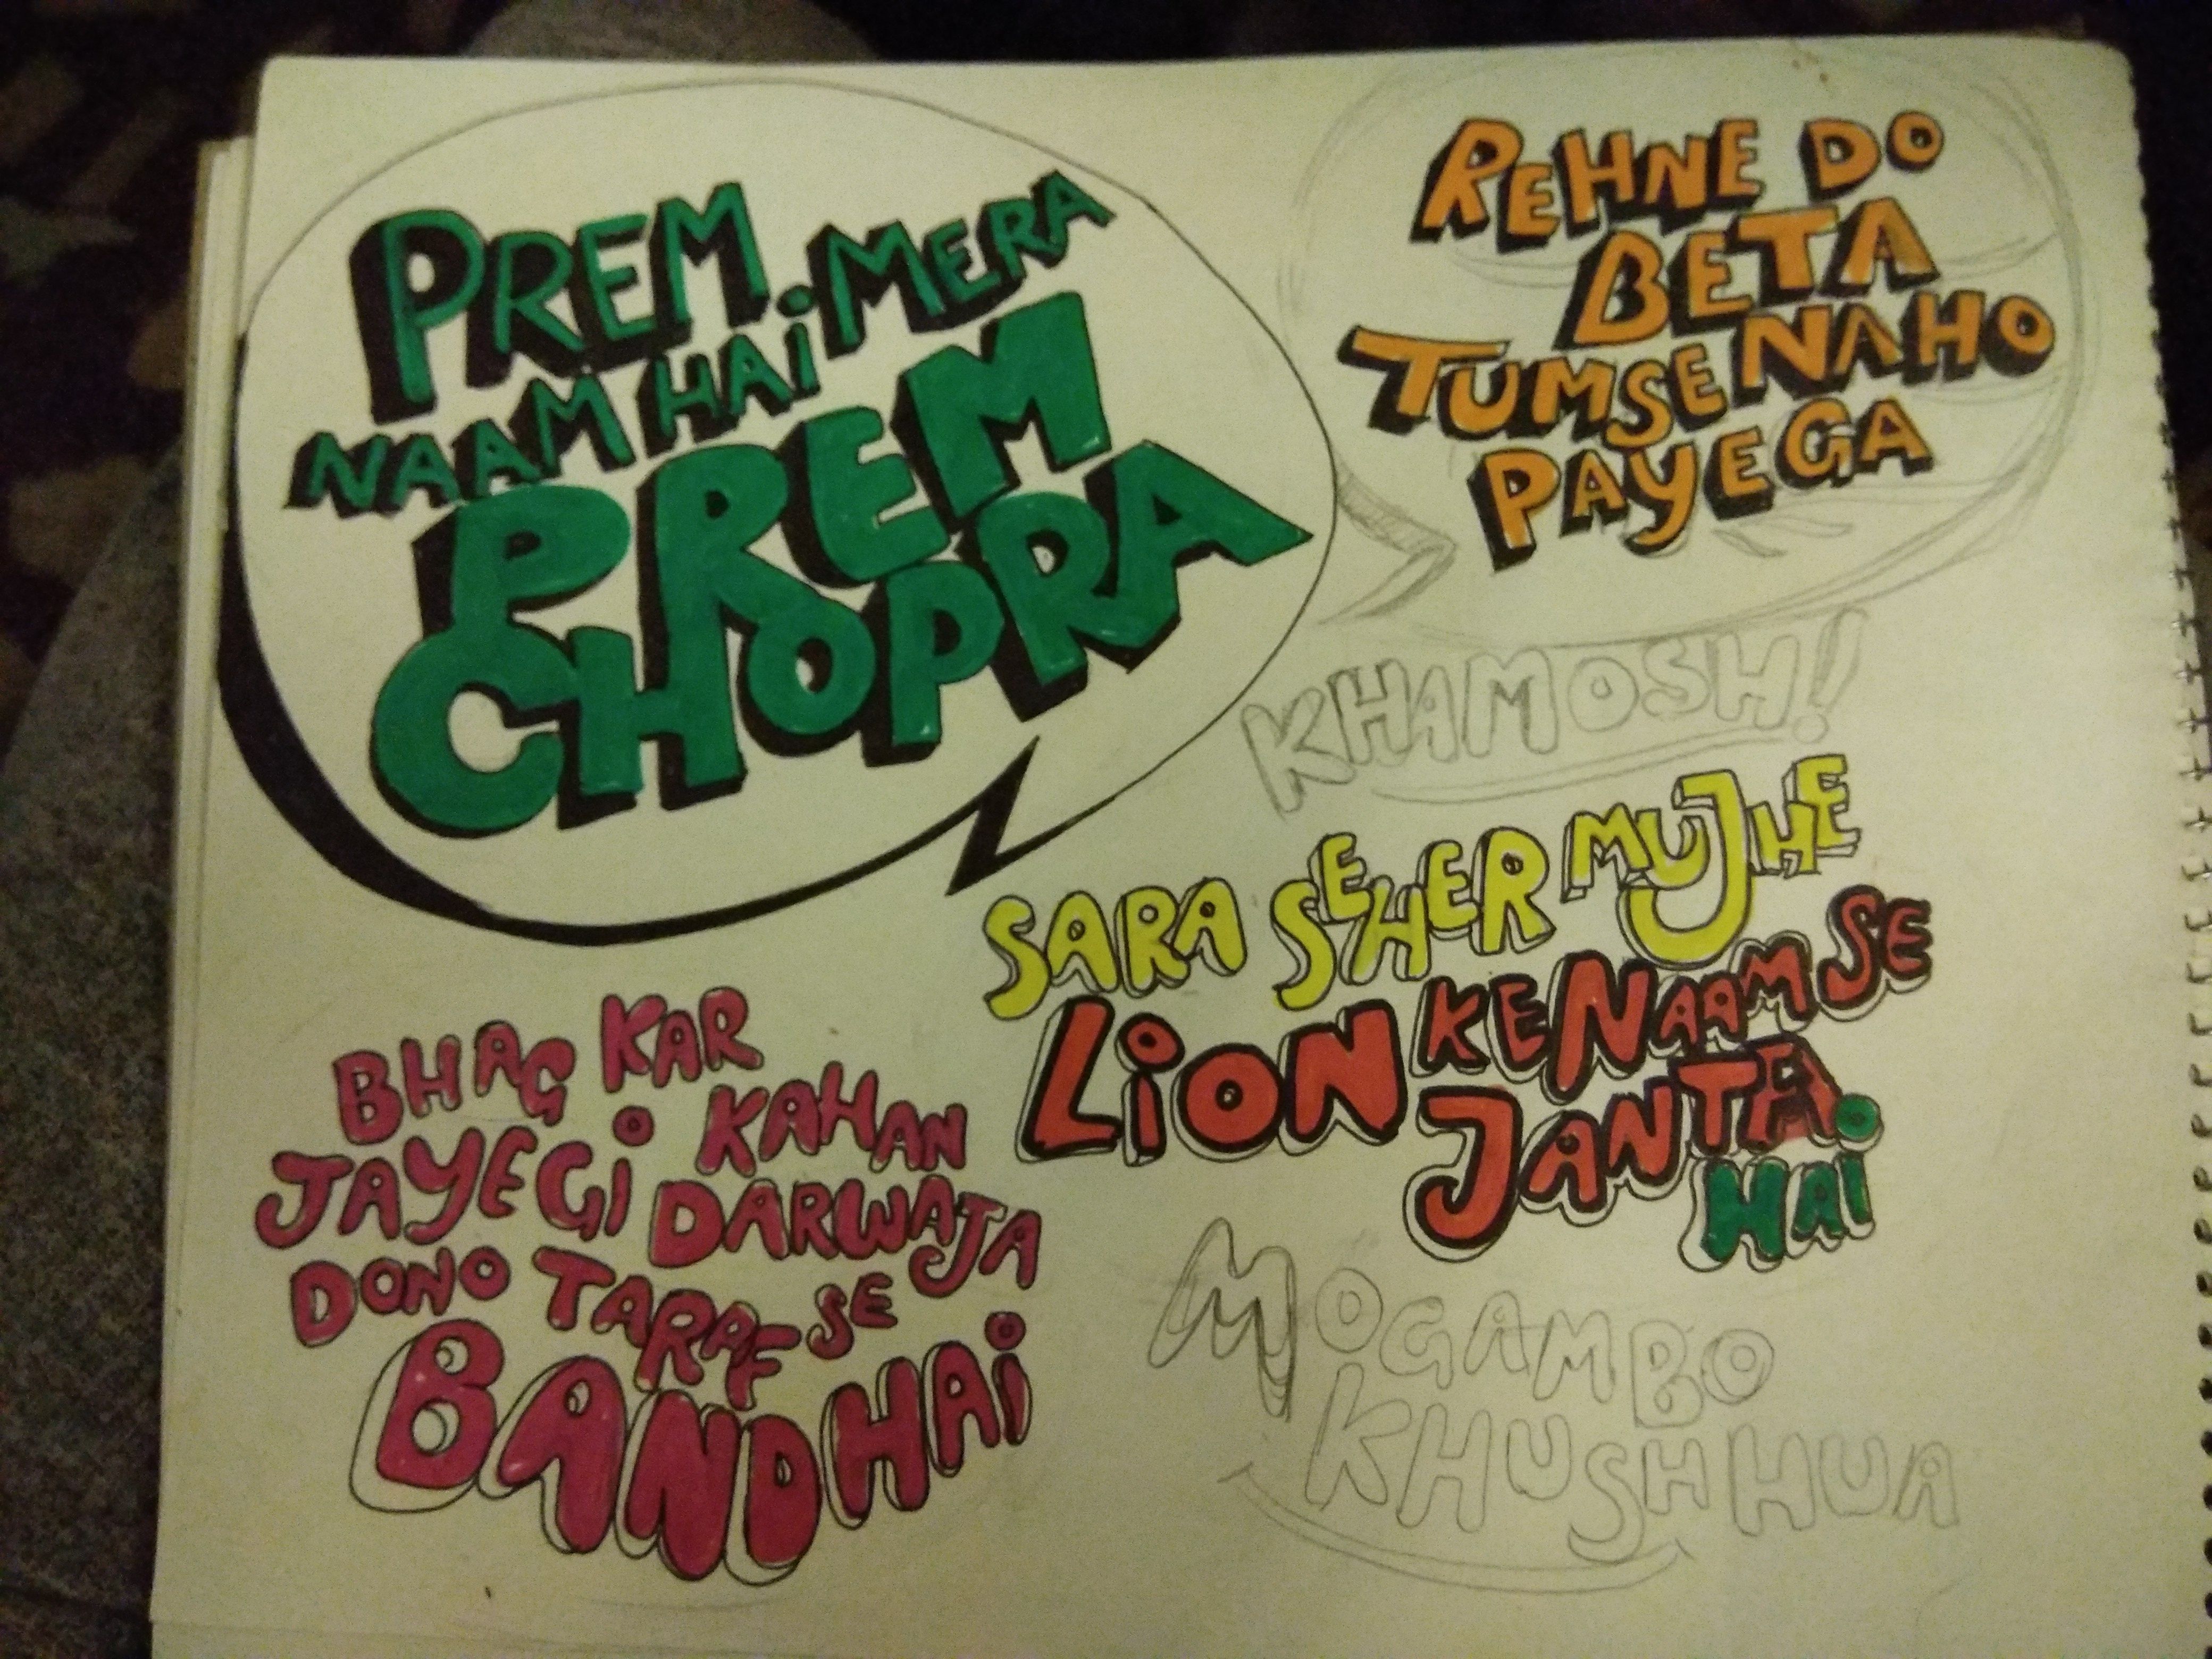 PREM.
NAAM HAi MERA
PREM
CHOPRA
REHNE DO
BETA
TUMSE NA HO
PAYEGA
KHAMOSH!
SARA SEHER MUJHE
LiON KE NAAM SE
JANTA
HAi
BHAG KAR
KAHAN
JAYEGi DARWAJA
DONO TARAF SE
BAND HAi
MOGAMBO
KHUSH HUA